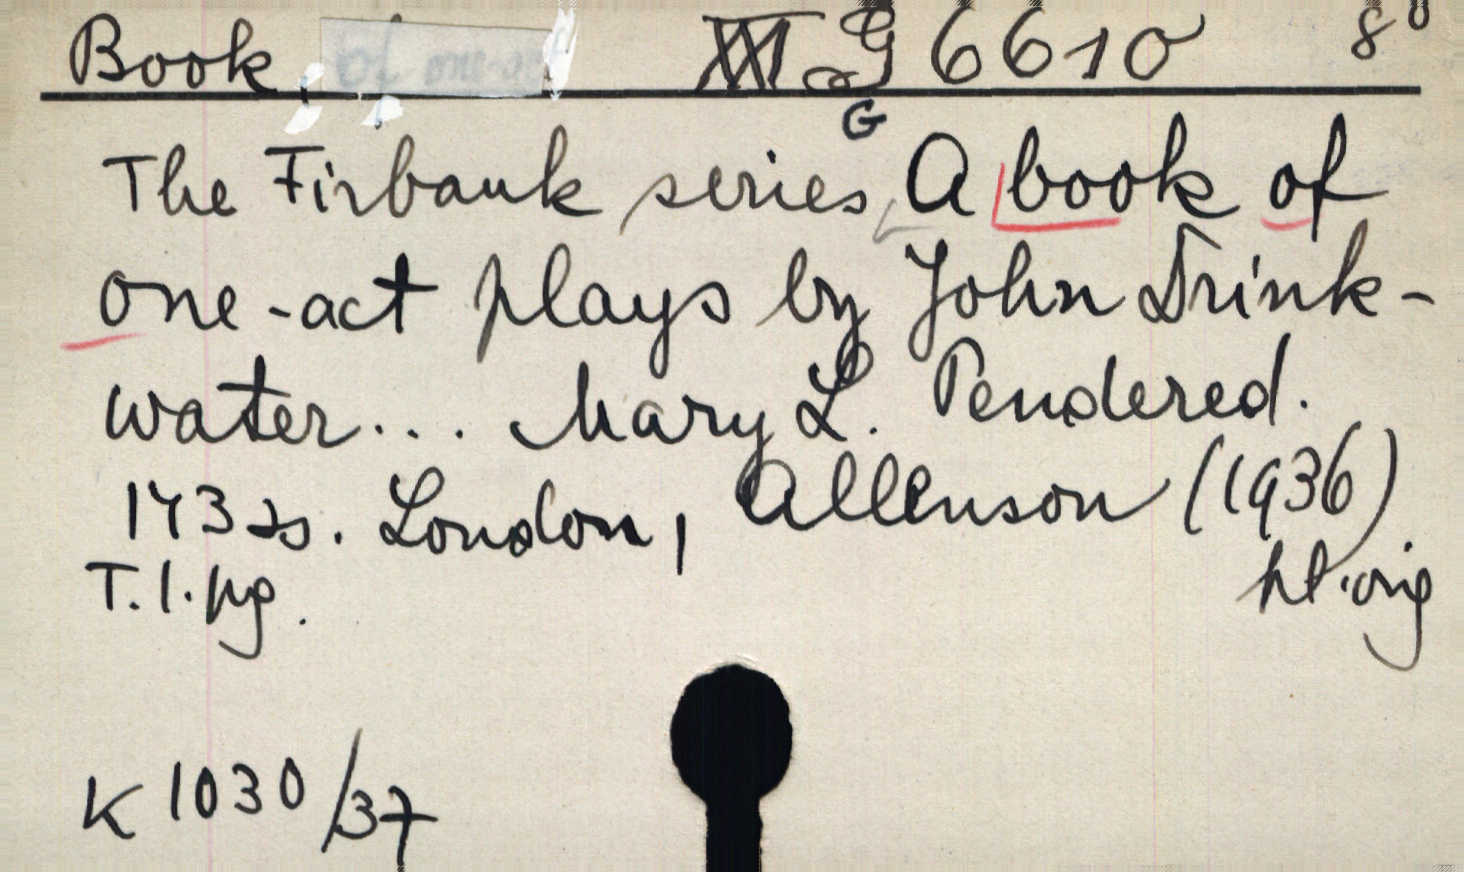 Book of one-act XXI G 6610 8°
G
The Firbank series A book of
one-act plays by John Drink-
water... Mary L. Pendered.
143 ss. London, Allenson (1936)
T.l.pg.
K 1030/37